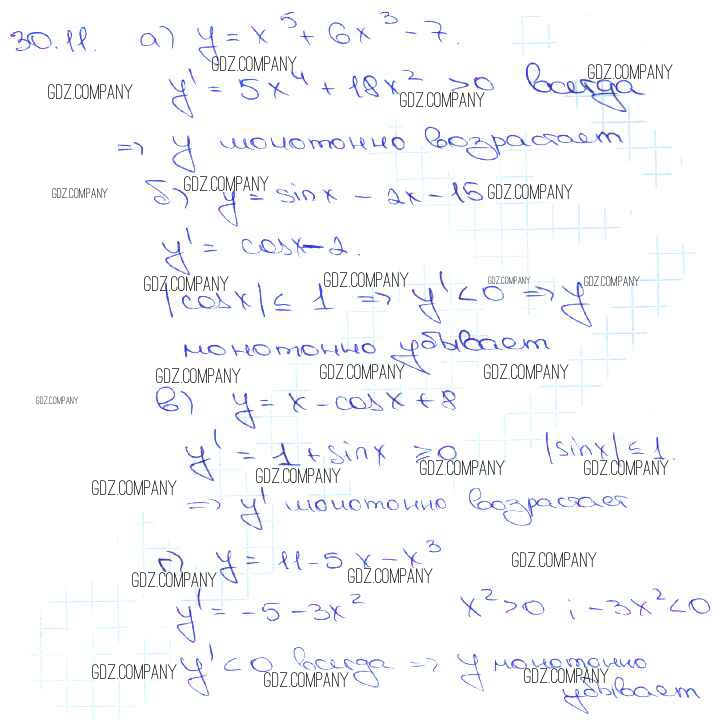 30.11. а) y = x⁵ + 6x³ - 7.
GDZ.COMPANY
GDZ.COMPANY GDZ.COMPANY GDZ.COMPANY
y' = 5x⁴ + 18x² >0 всегда
=> y монотонно возрастает
GDZ.COMPANY GDZ.COMPANY GDZ.COMPANY
б) y = sinx - 2x - 15
y' = cosx - 2.
GDZ.COMPANY GDZ.COMPANY GDZ.COMPANY GDZ.COMPANY
|cosx| ≤ 1 => y' < 0 => y
монотонно убывает
GDZ.COMPANY GDZ.COMPANY GDZ.COMPANY
GDZ.COMPANY
в) y = x - cosx + 8
y' = 1 + sinx ≥0 |sinx| ≤ 1.
GDZ.COMPANY GDZ.COMPANY GDZ.COMPANY
GDZ.COMPANY
=> y' монотонно возрастает
г) y = 11 - 5x - x³
GDZ.COMPANY GDZ.COMPANY GDZ.COMPANY
y' = -5 - 3x² x² > 0 ; -3x² < 0
y' < 0 всегда => y монотонно
GDZ.COMPANY GDZ.COMPANY GDZ.COMPANY
убывает